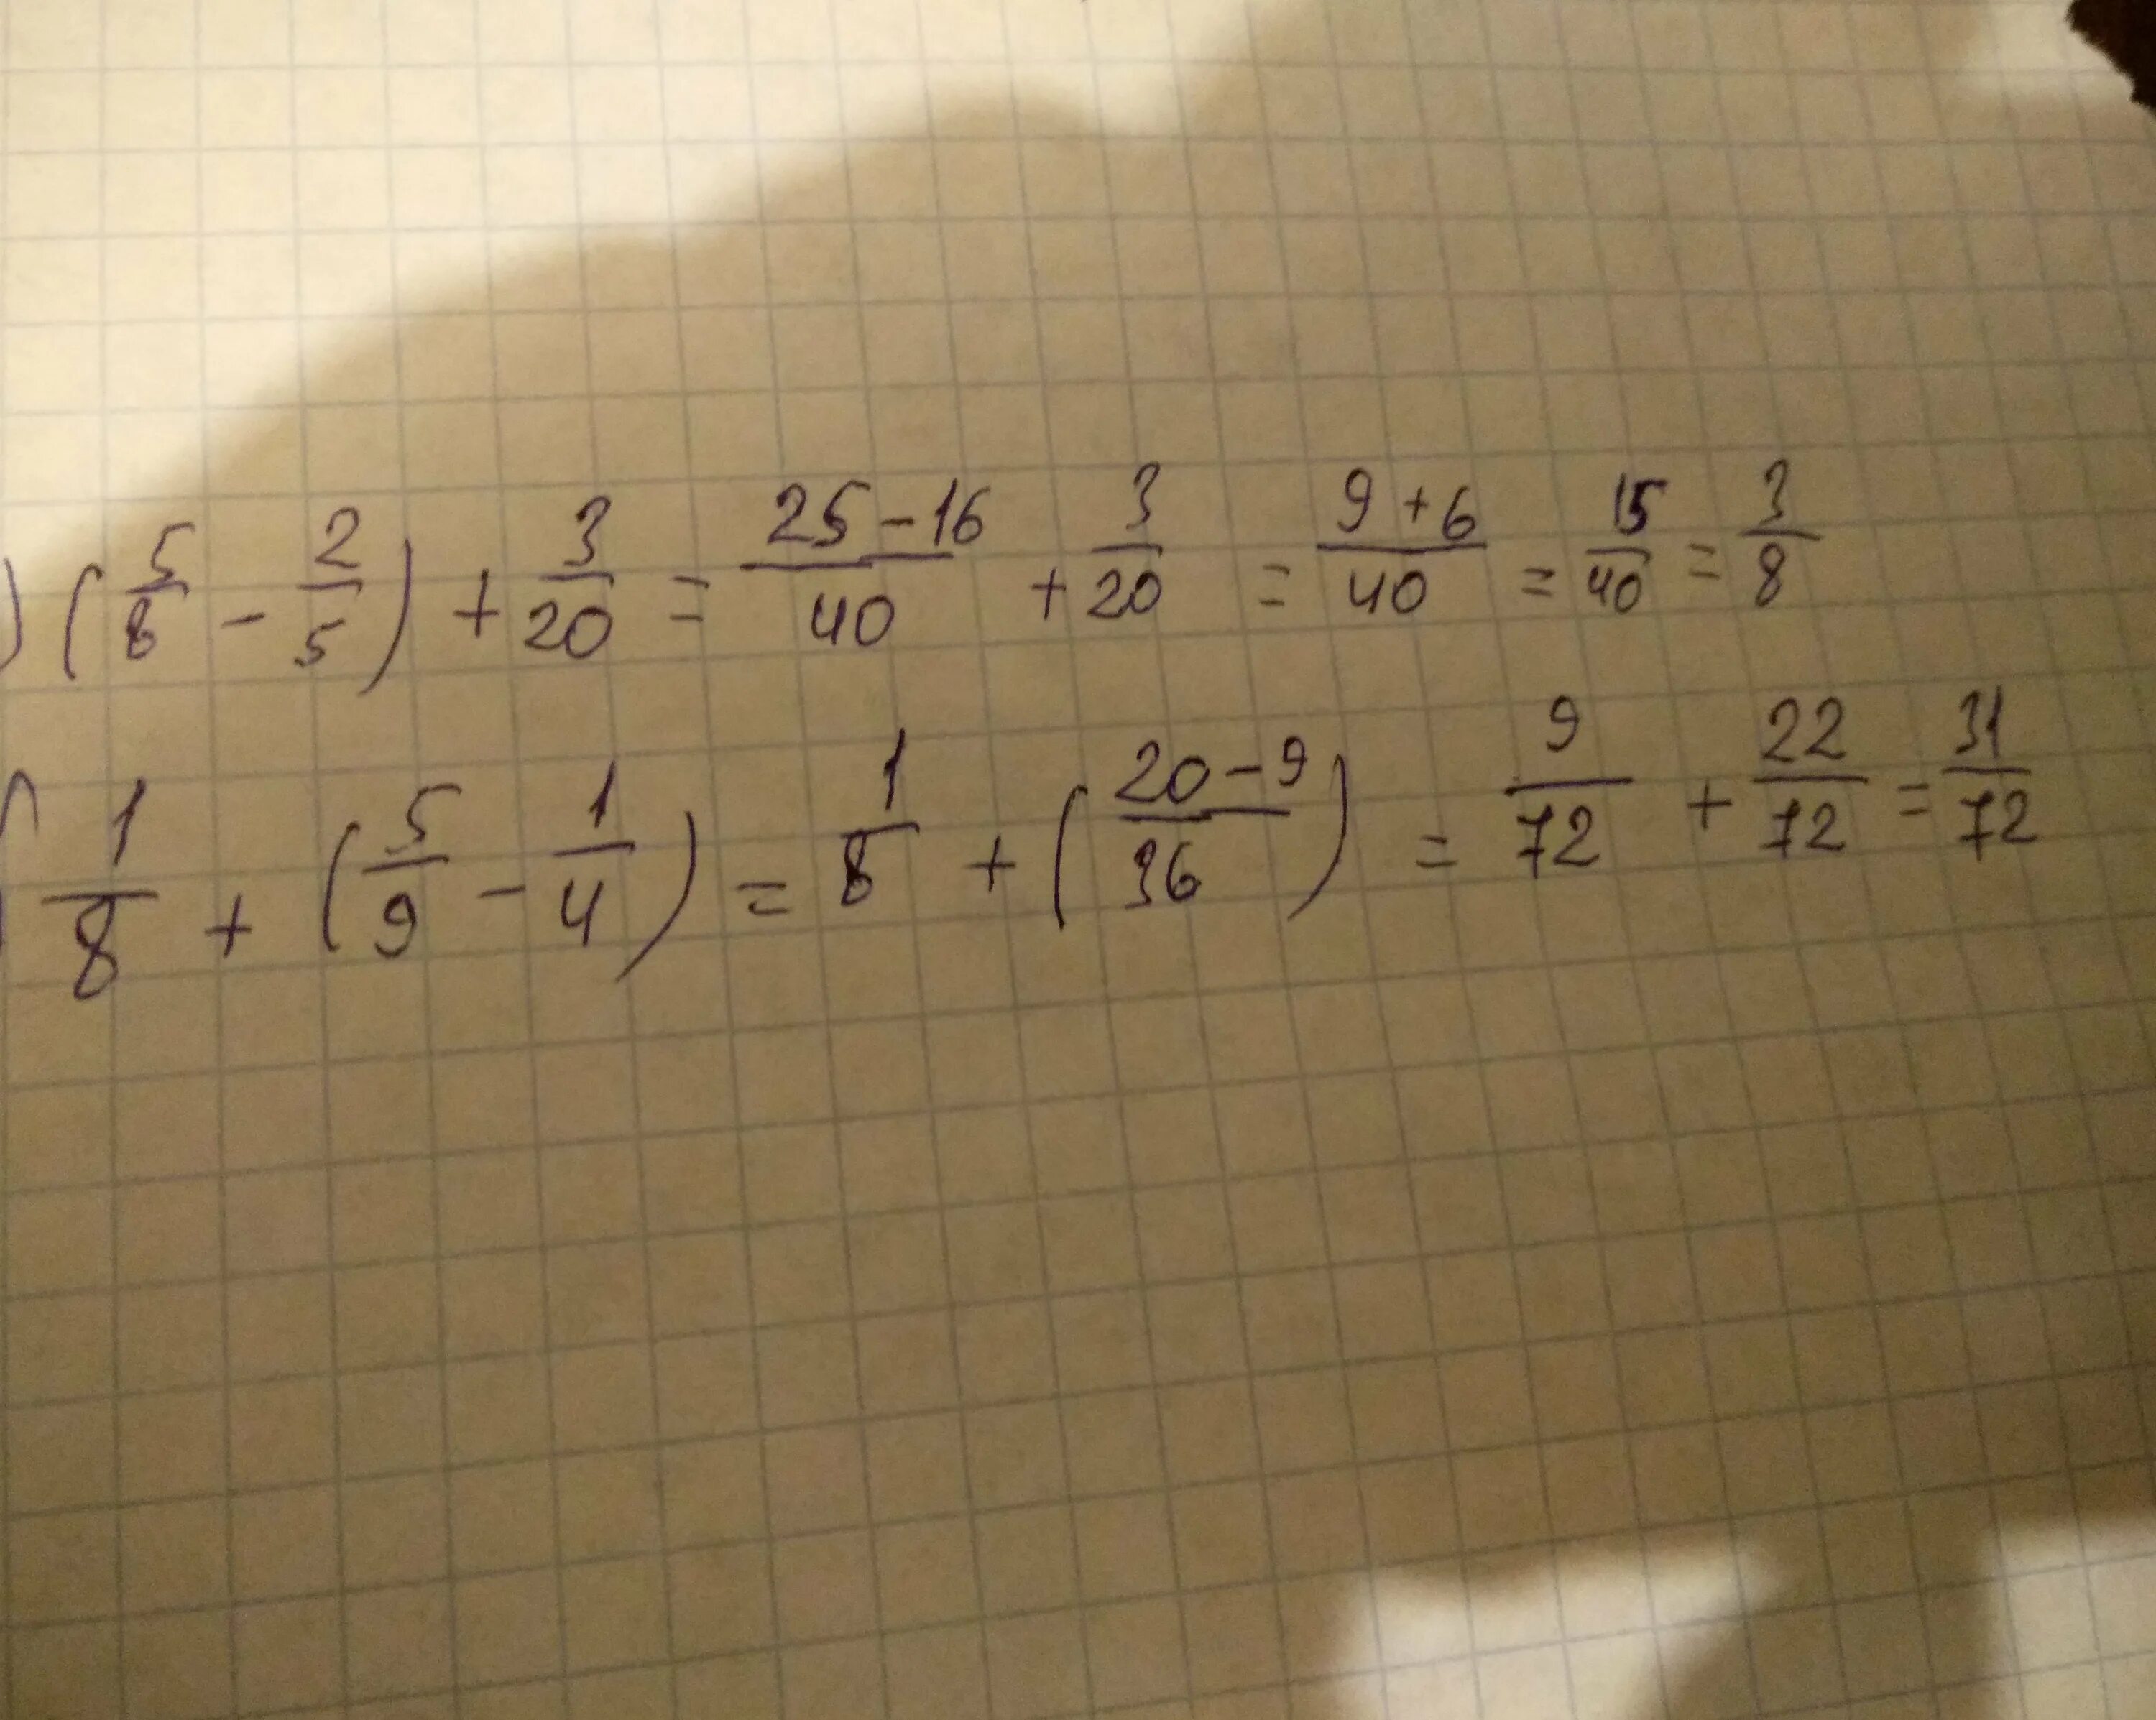 ) (5/8 - 2/5) + 3/20 = 25-16/40 + 3/20 = 9+6/40 = 15/40 = 3/8
1/8 + (5/9 - 1/4) = 1/8 + (20-9/36) = 9/72 + 22/72 = 31/72